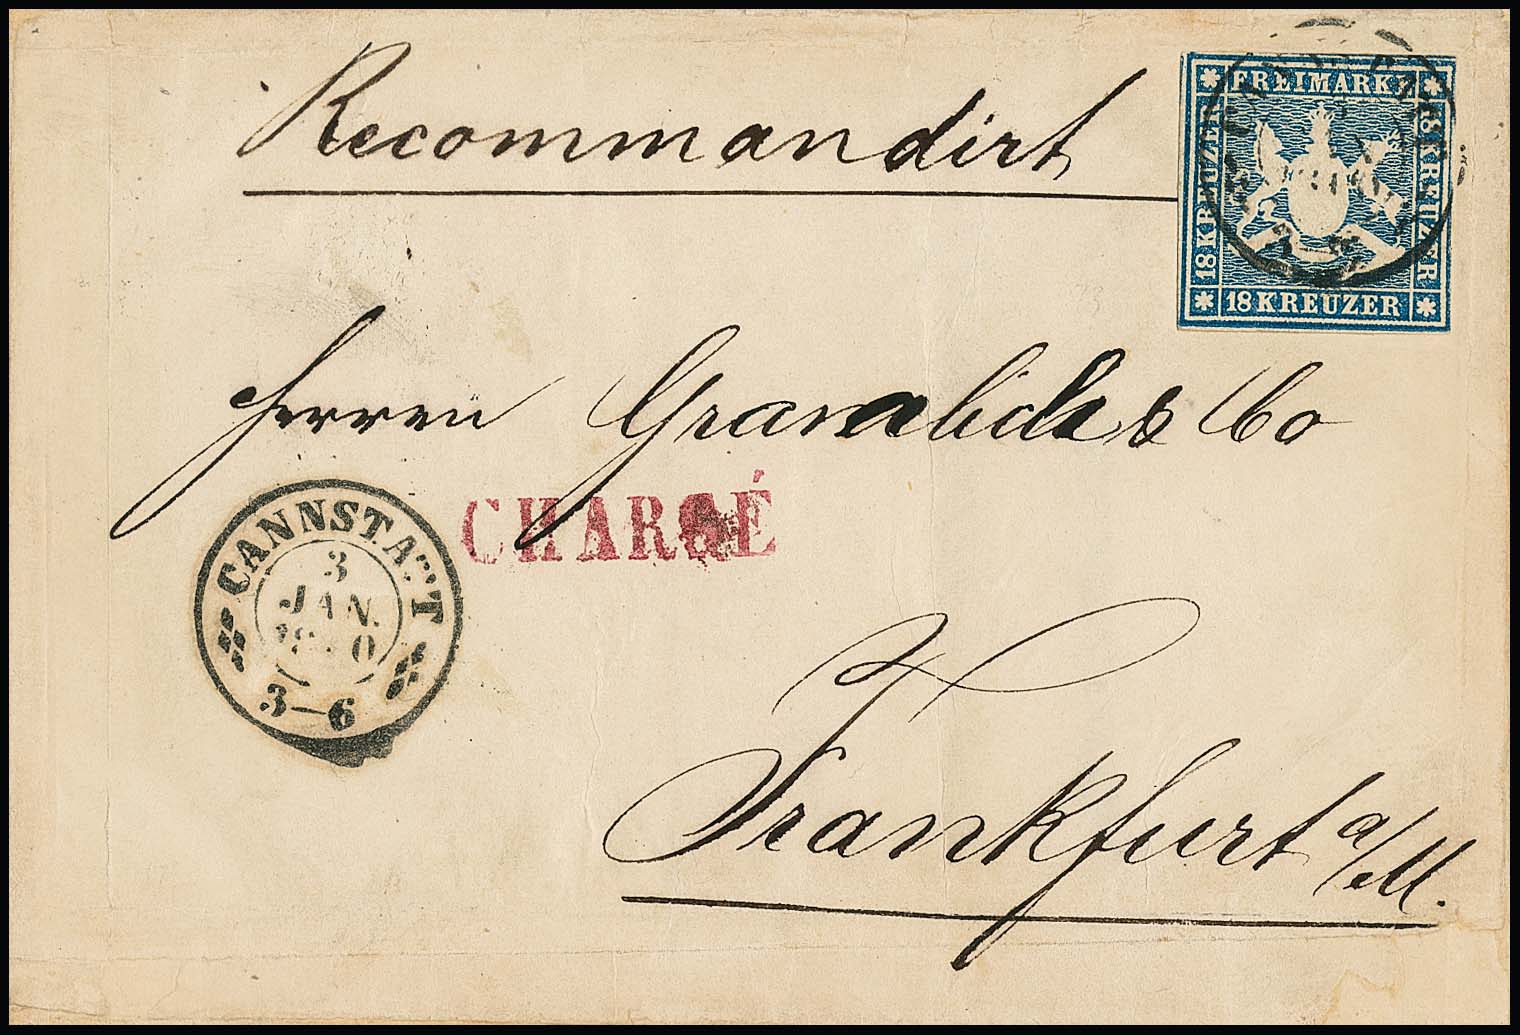 Recommandirt
FREIMARKE
18 KREUZER
18 KREUZER
18 KREUZER
Herren & Co
CHARGÉ
CANNSTATT
3
JAN.
3-6
Frankfurt a/M.